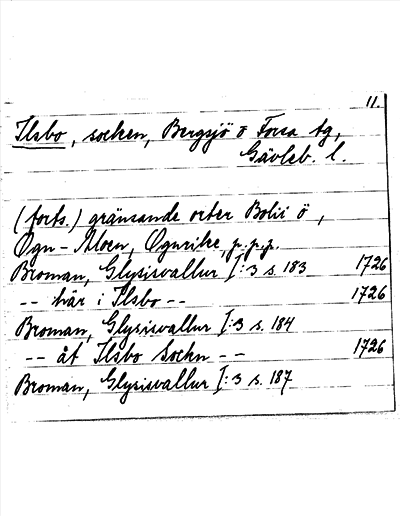 11.
Ilsbo, socken, Bergsjö o Forsa tg,
Gävleb. l.
(forts.) gränsande orter Bolii ö,
Ogn-Moen, Ognrike, p.p.p.
Broman, Glysisvallur I:3 s. 183 1726
-- här i Ilsbo -- 1726
Broman, Glysisvallur I:3 s. 184
-- åt Ilsbo Sockn -- 1726
Broman, Glysisvallur I:3 s. 187